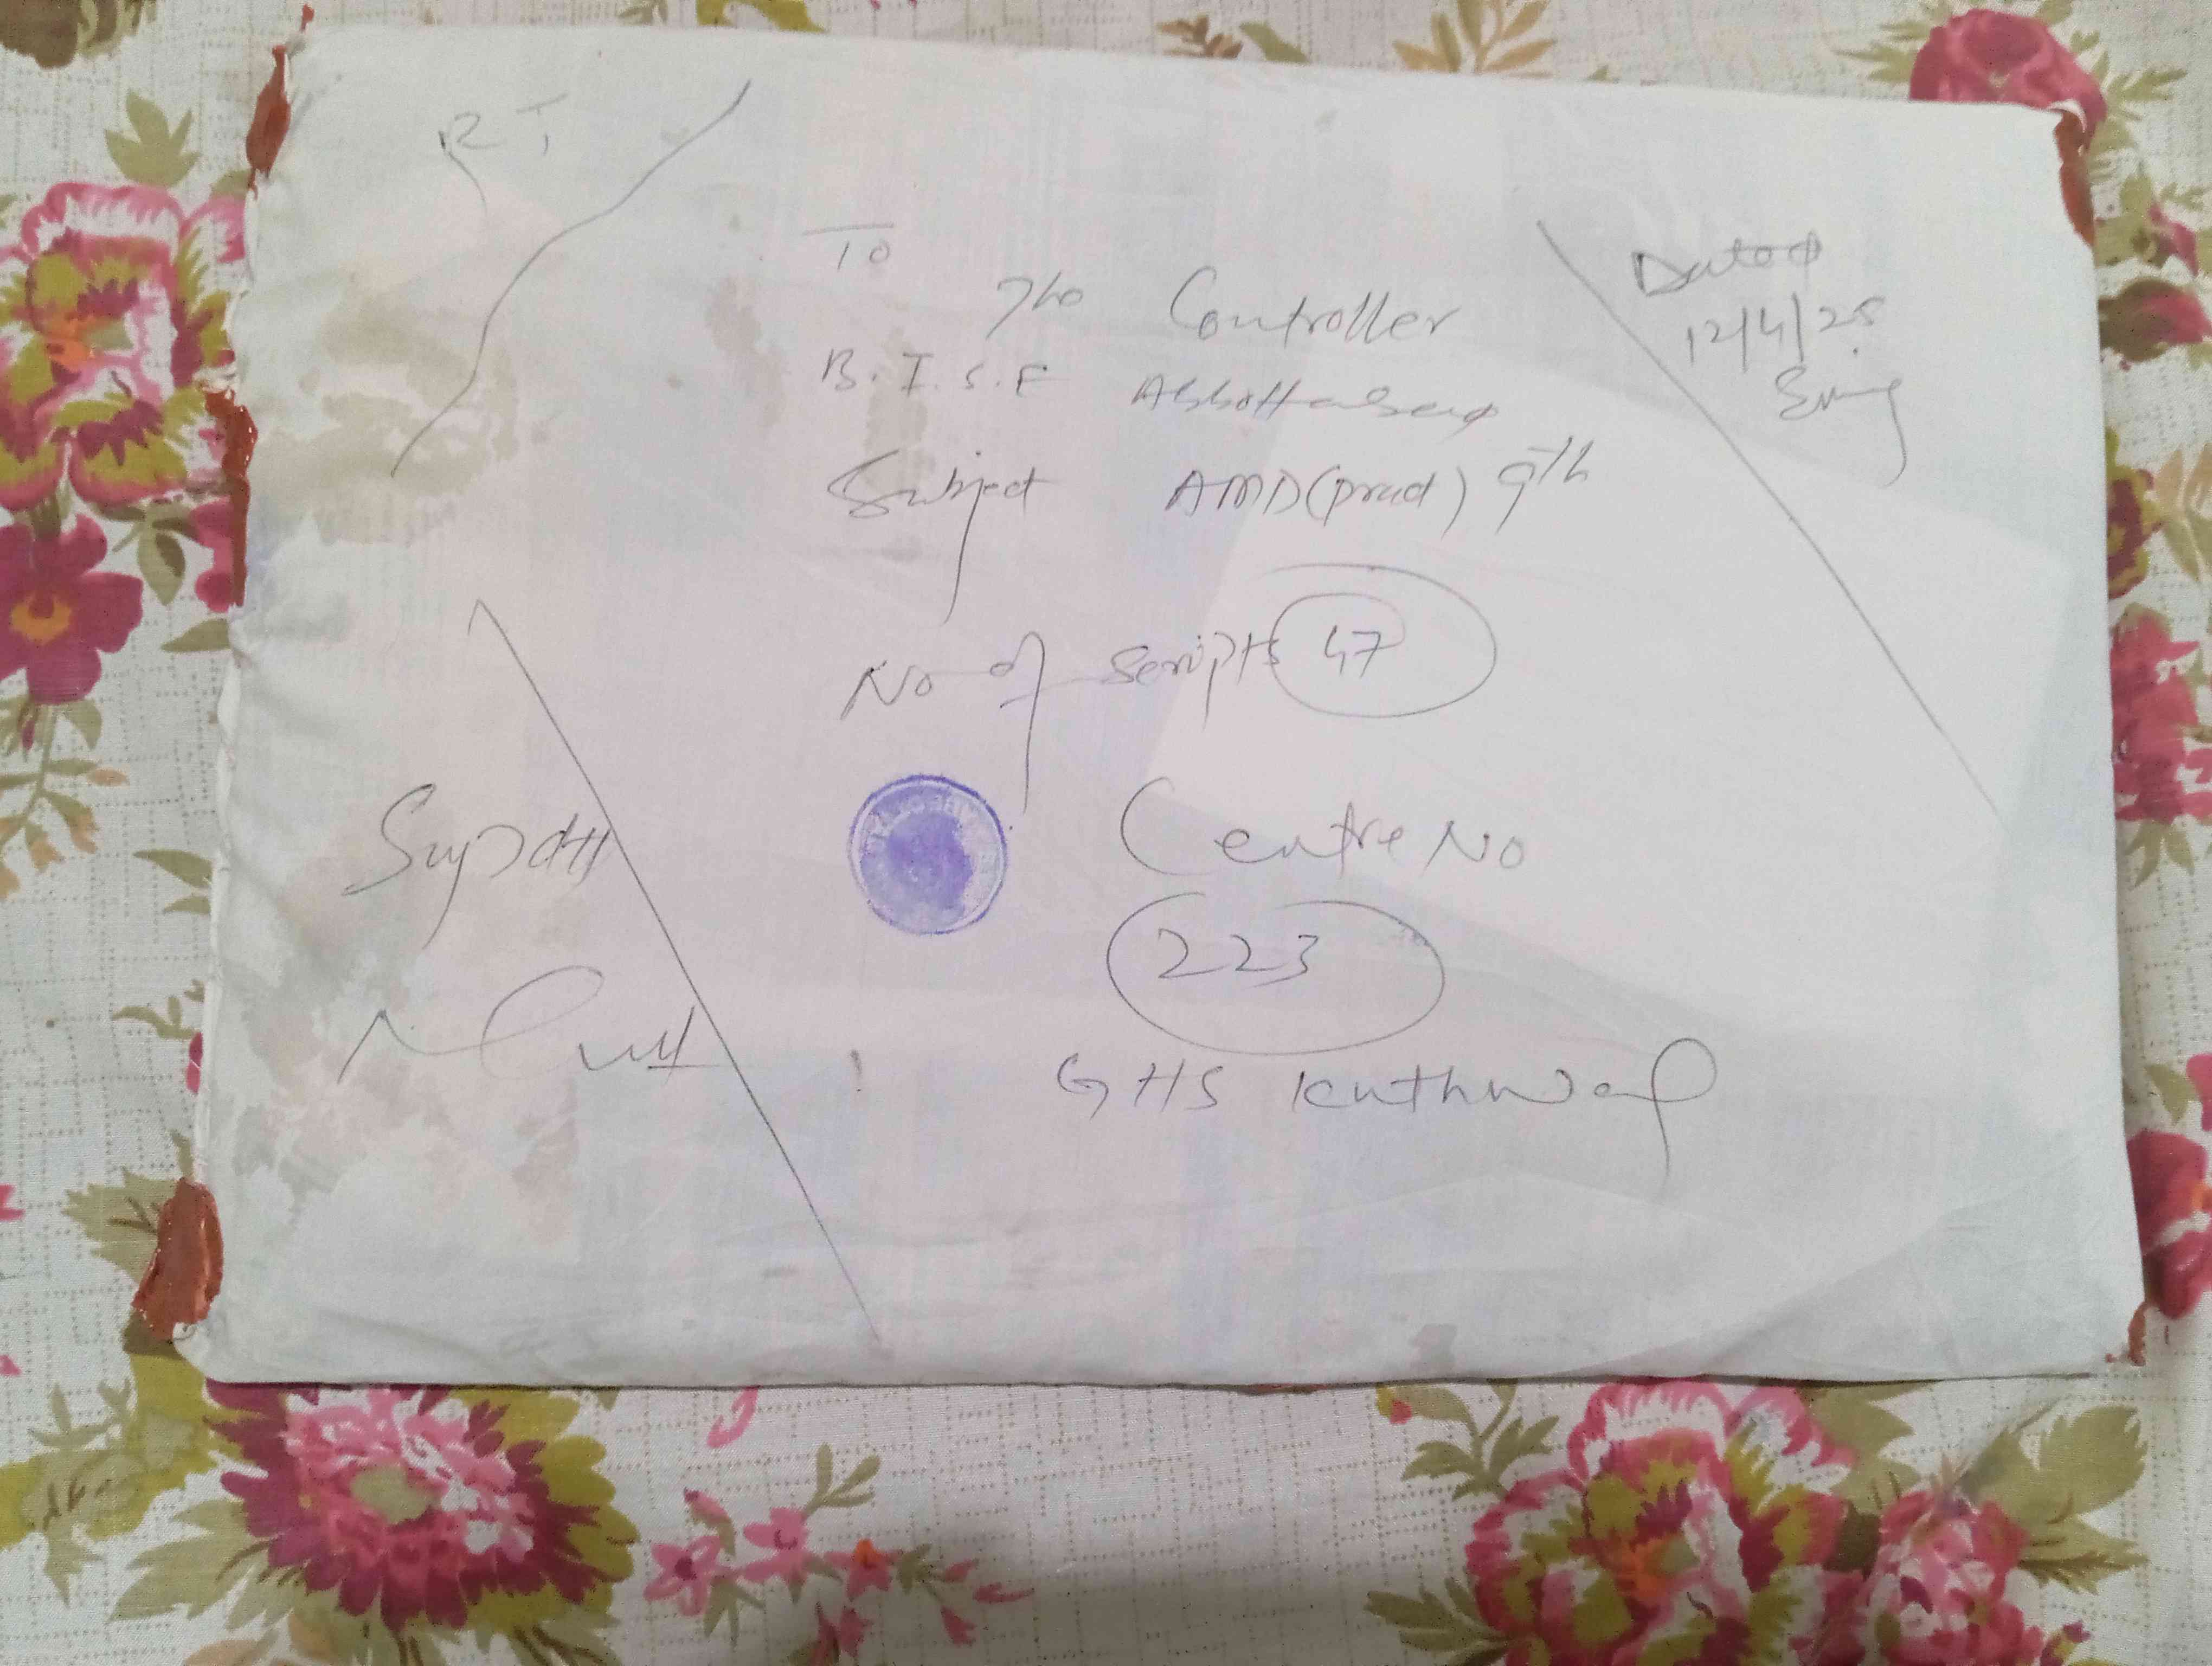 RT
To
The Controller
B.I.S.E Abbottabad
Subject AMD(prad) 9th
No of scripts 47
Centre No
223
GHS Kuthwal
Dated
12/4/25
Eving
Supdtt